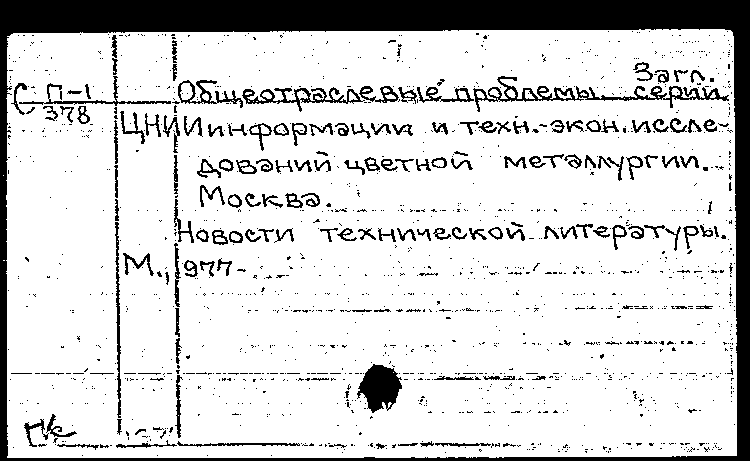 Загл.
С П-1 Общеотраслевые проблемы серии
378
ЦНИИинформации и техн.-экон. иссле-
дований цветной металлургии.
Москва.
Новости технической литературы.
М., 1977-